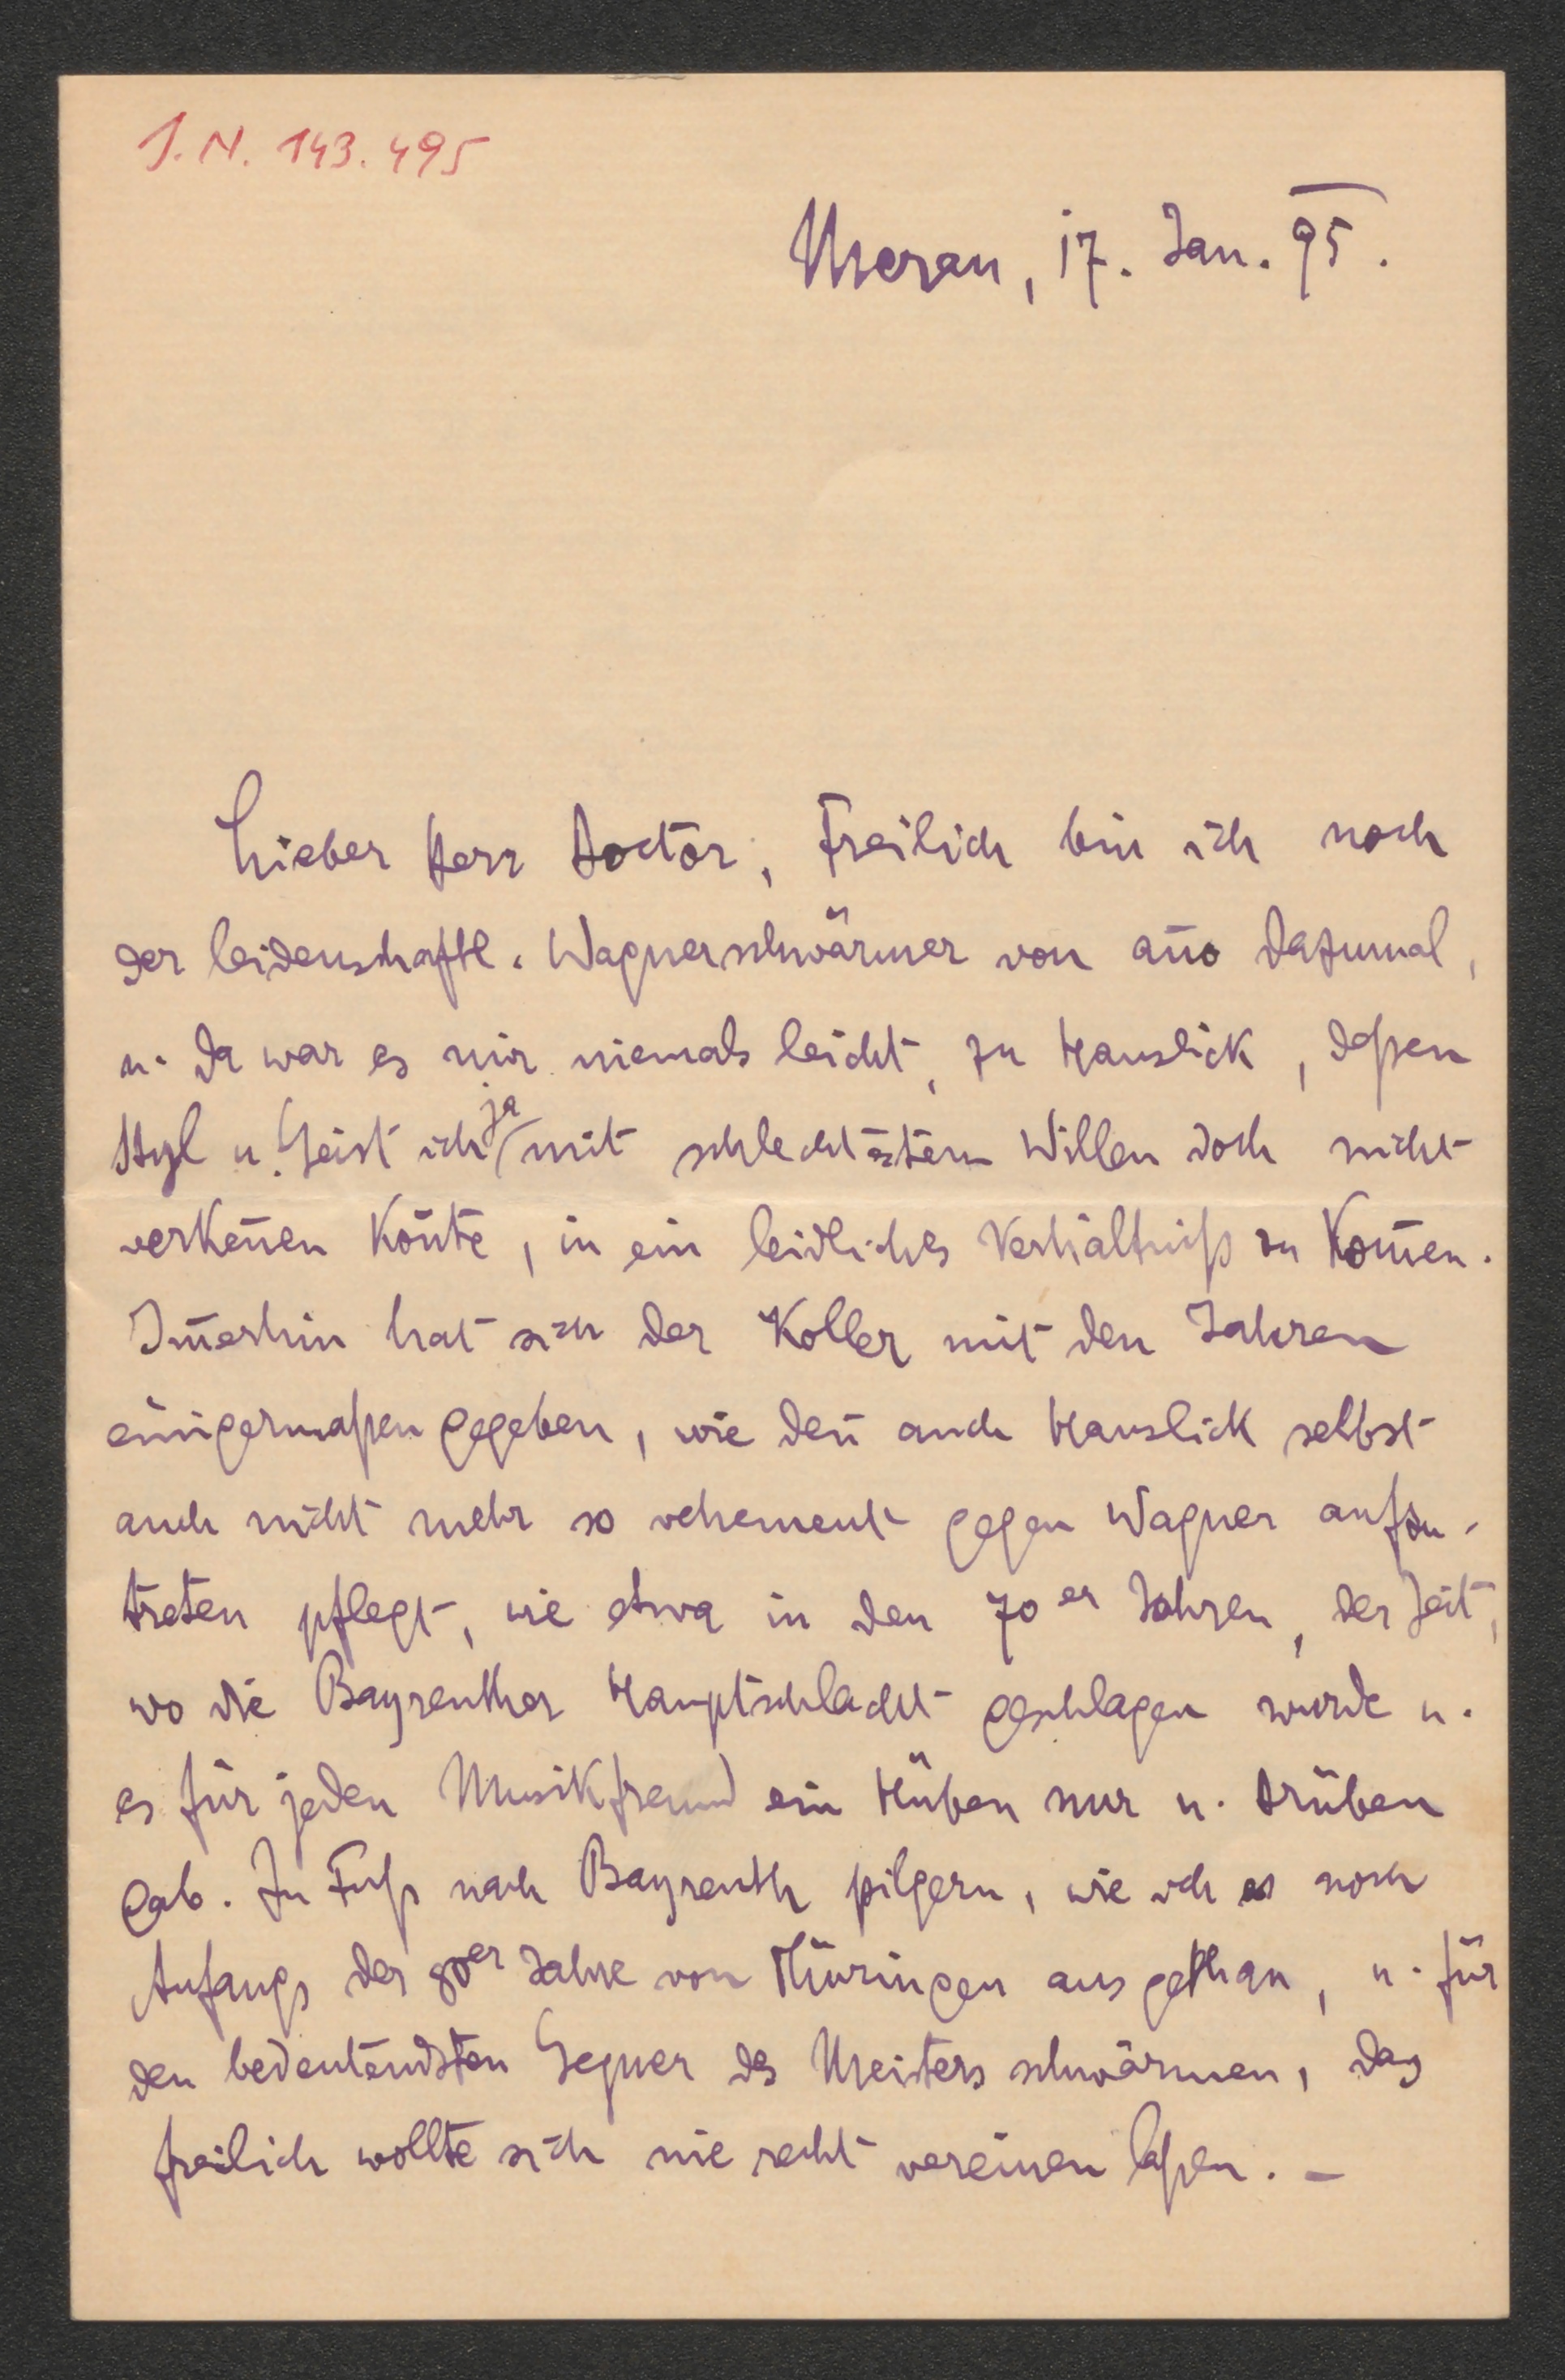 I. N. 143.495
Meran, 17. Jan. 95.
Lieber Herr Doctor, Freilich bin ich noch
der leidenschaftl. Wagnerschwärmer von año dazumal,
u. da war es mir niemals leicht, zu Hanslick, deßen
Styl u. Geist ich ja mit schlechtestem Willen doch nicht
verkeñen koñte, in ein leidliches Verhältniß zu kom̄en.
Im̄erhin hat sich der Koller mit den Jahren
einigermaßen gegeben, wie deñ auch Hanslick selbst
auch nicht mehr so vehement gegen Wagner aufzu-
treten pflegt, wie etwa in den 70er Jahren, der Zeit,
wo die Bayreuther Hauptschlacht geschlagen wurde u.
es für jeden Musikfreund ein Hüben nur u. Drüben
gab. Zu Fuß nach Bayreuth pilgern, wie ich es noch
Anfangs der 80er Jahre von Thüringen aus gethan, u. für
den bedeutendsten Gegner des Meisters schwärmen, das
freilich wollte sich nie recht vereinen laßen. –